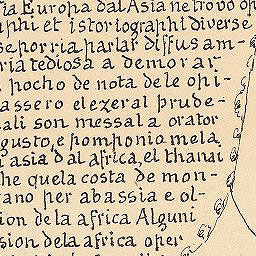 ia Europa dal Asia ne trovo op
phi et istoriographi diverse
se porria parlar diffusam-
ria tediosa a demorar
pocho de nota de le opi-
lassero elezer al prude-
ali son messal a orator
gusto, e pomponio mela
i asia dal africa, el thanai
he quela costa de mon-
ano per abassia e ol-
ion de la africa Alguni
sion de la africa oper